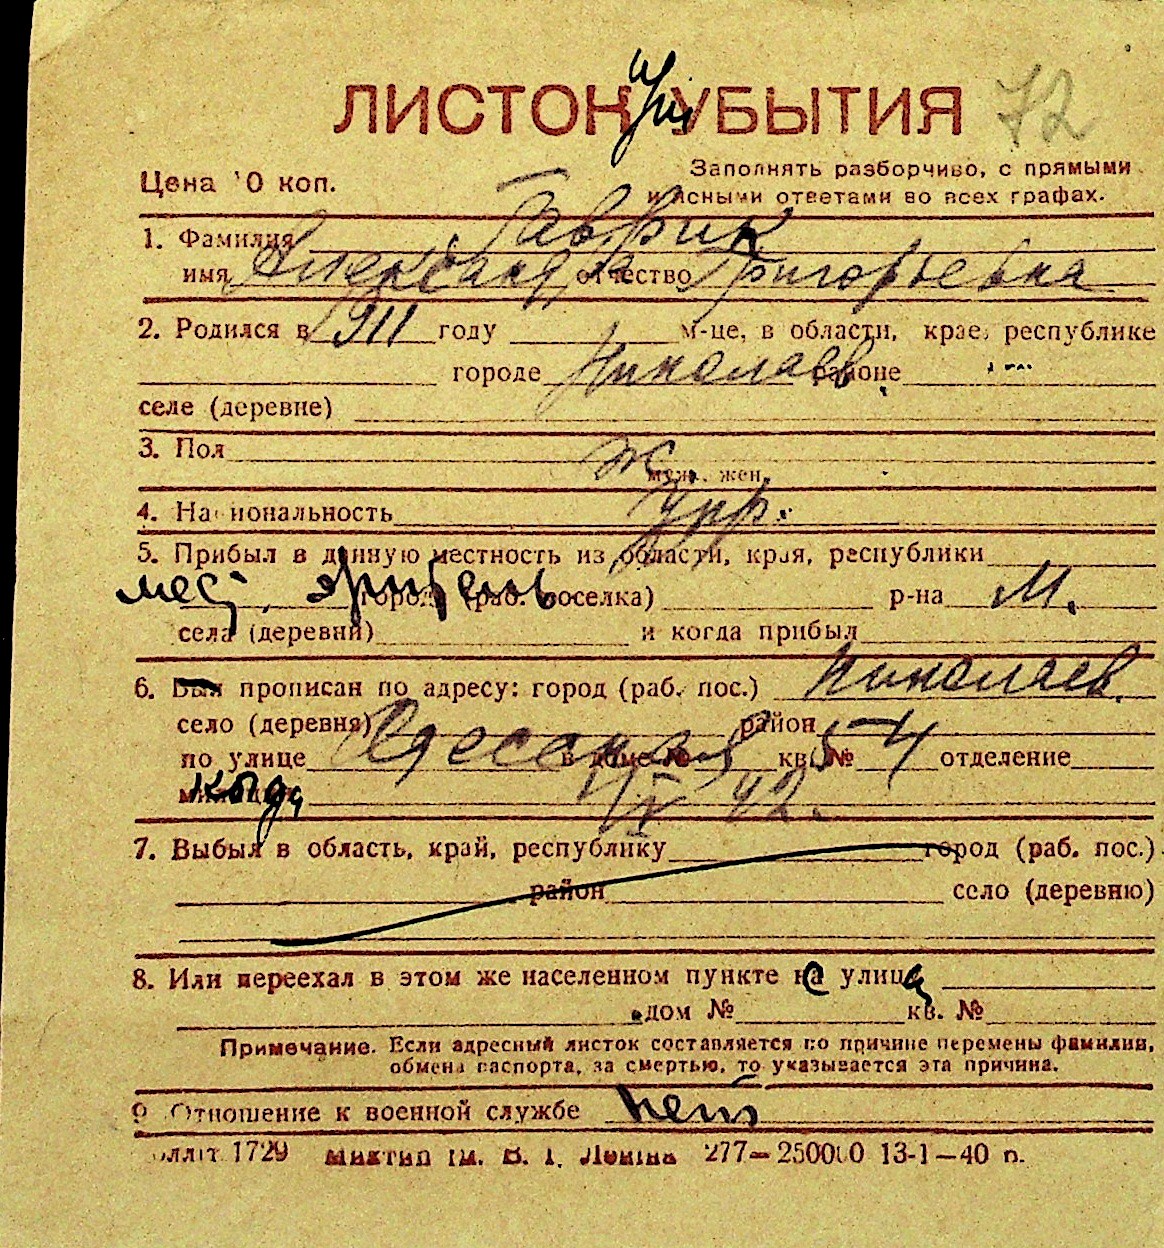 ЛИСТОК УБЫТИЯ
72
Цена 10 коп.
Заполнять разборчиво, с прямыми
и ясными ответами во всех графах.
1. Фамилия Гаврик
имя Александра отчество Григорьевна
2. Родился в 1911 году м-це, в области, крае, республике
городе Николаев районе
селе (деревне)
3. Пол ж
муж., жен.
4. Национальность Укр.
5. Прибыл в данную местность из области, края, республики
мест. города (раб. поселка) р-на М.
села (деревни) и когда прибыл
6. Был прописан по адресу: город (раб. пос.) Николаев
село (деревня) район
по улице Одесская в доме № кв. № 4 отделение
милиции когда IV 42.
7. Выбыл в область, край, республику город (раб. пос.)
район село (деревню)
8. Или переехал в этом же населенном пункте на улицу
дом № кв. № 
Примечание. Если адресный листок составляется по причине перемены фамилии,
обмена паспорта, за смертью, то указывается эта причина.
9 Отношение к военной службе нет
1729 ім. В. І. Леніна 277—250000 13-1—40 р.